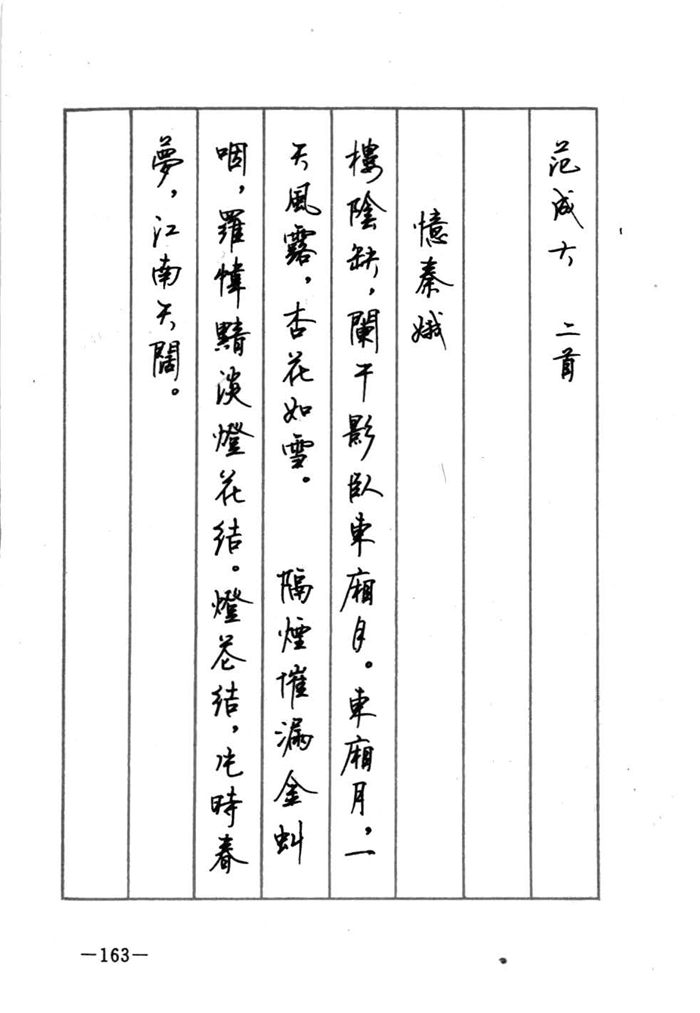 范成大 二首
憶秦娥
樓陰缺，闌干影臥東廂月。東廂月，一
天風露，杏花如雪。 隔煙催漏金虯
咽，羅幃黯淡燈花結。燈花結，片時春
夢，江南天闊。
—163—